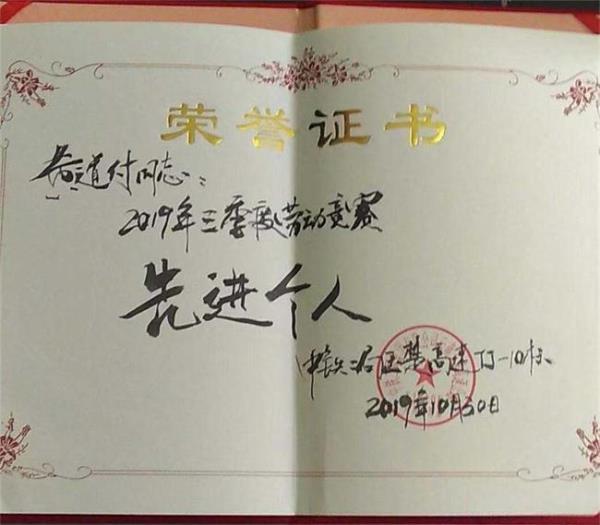 荣誉证书
道付同志：
2019年三季度劳动竞赛
先进个人
中铁二局玉楚高速TJ-10标
2019年10月30日